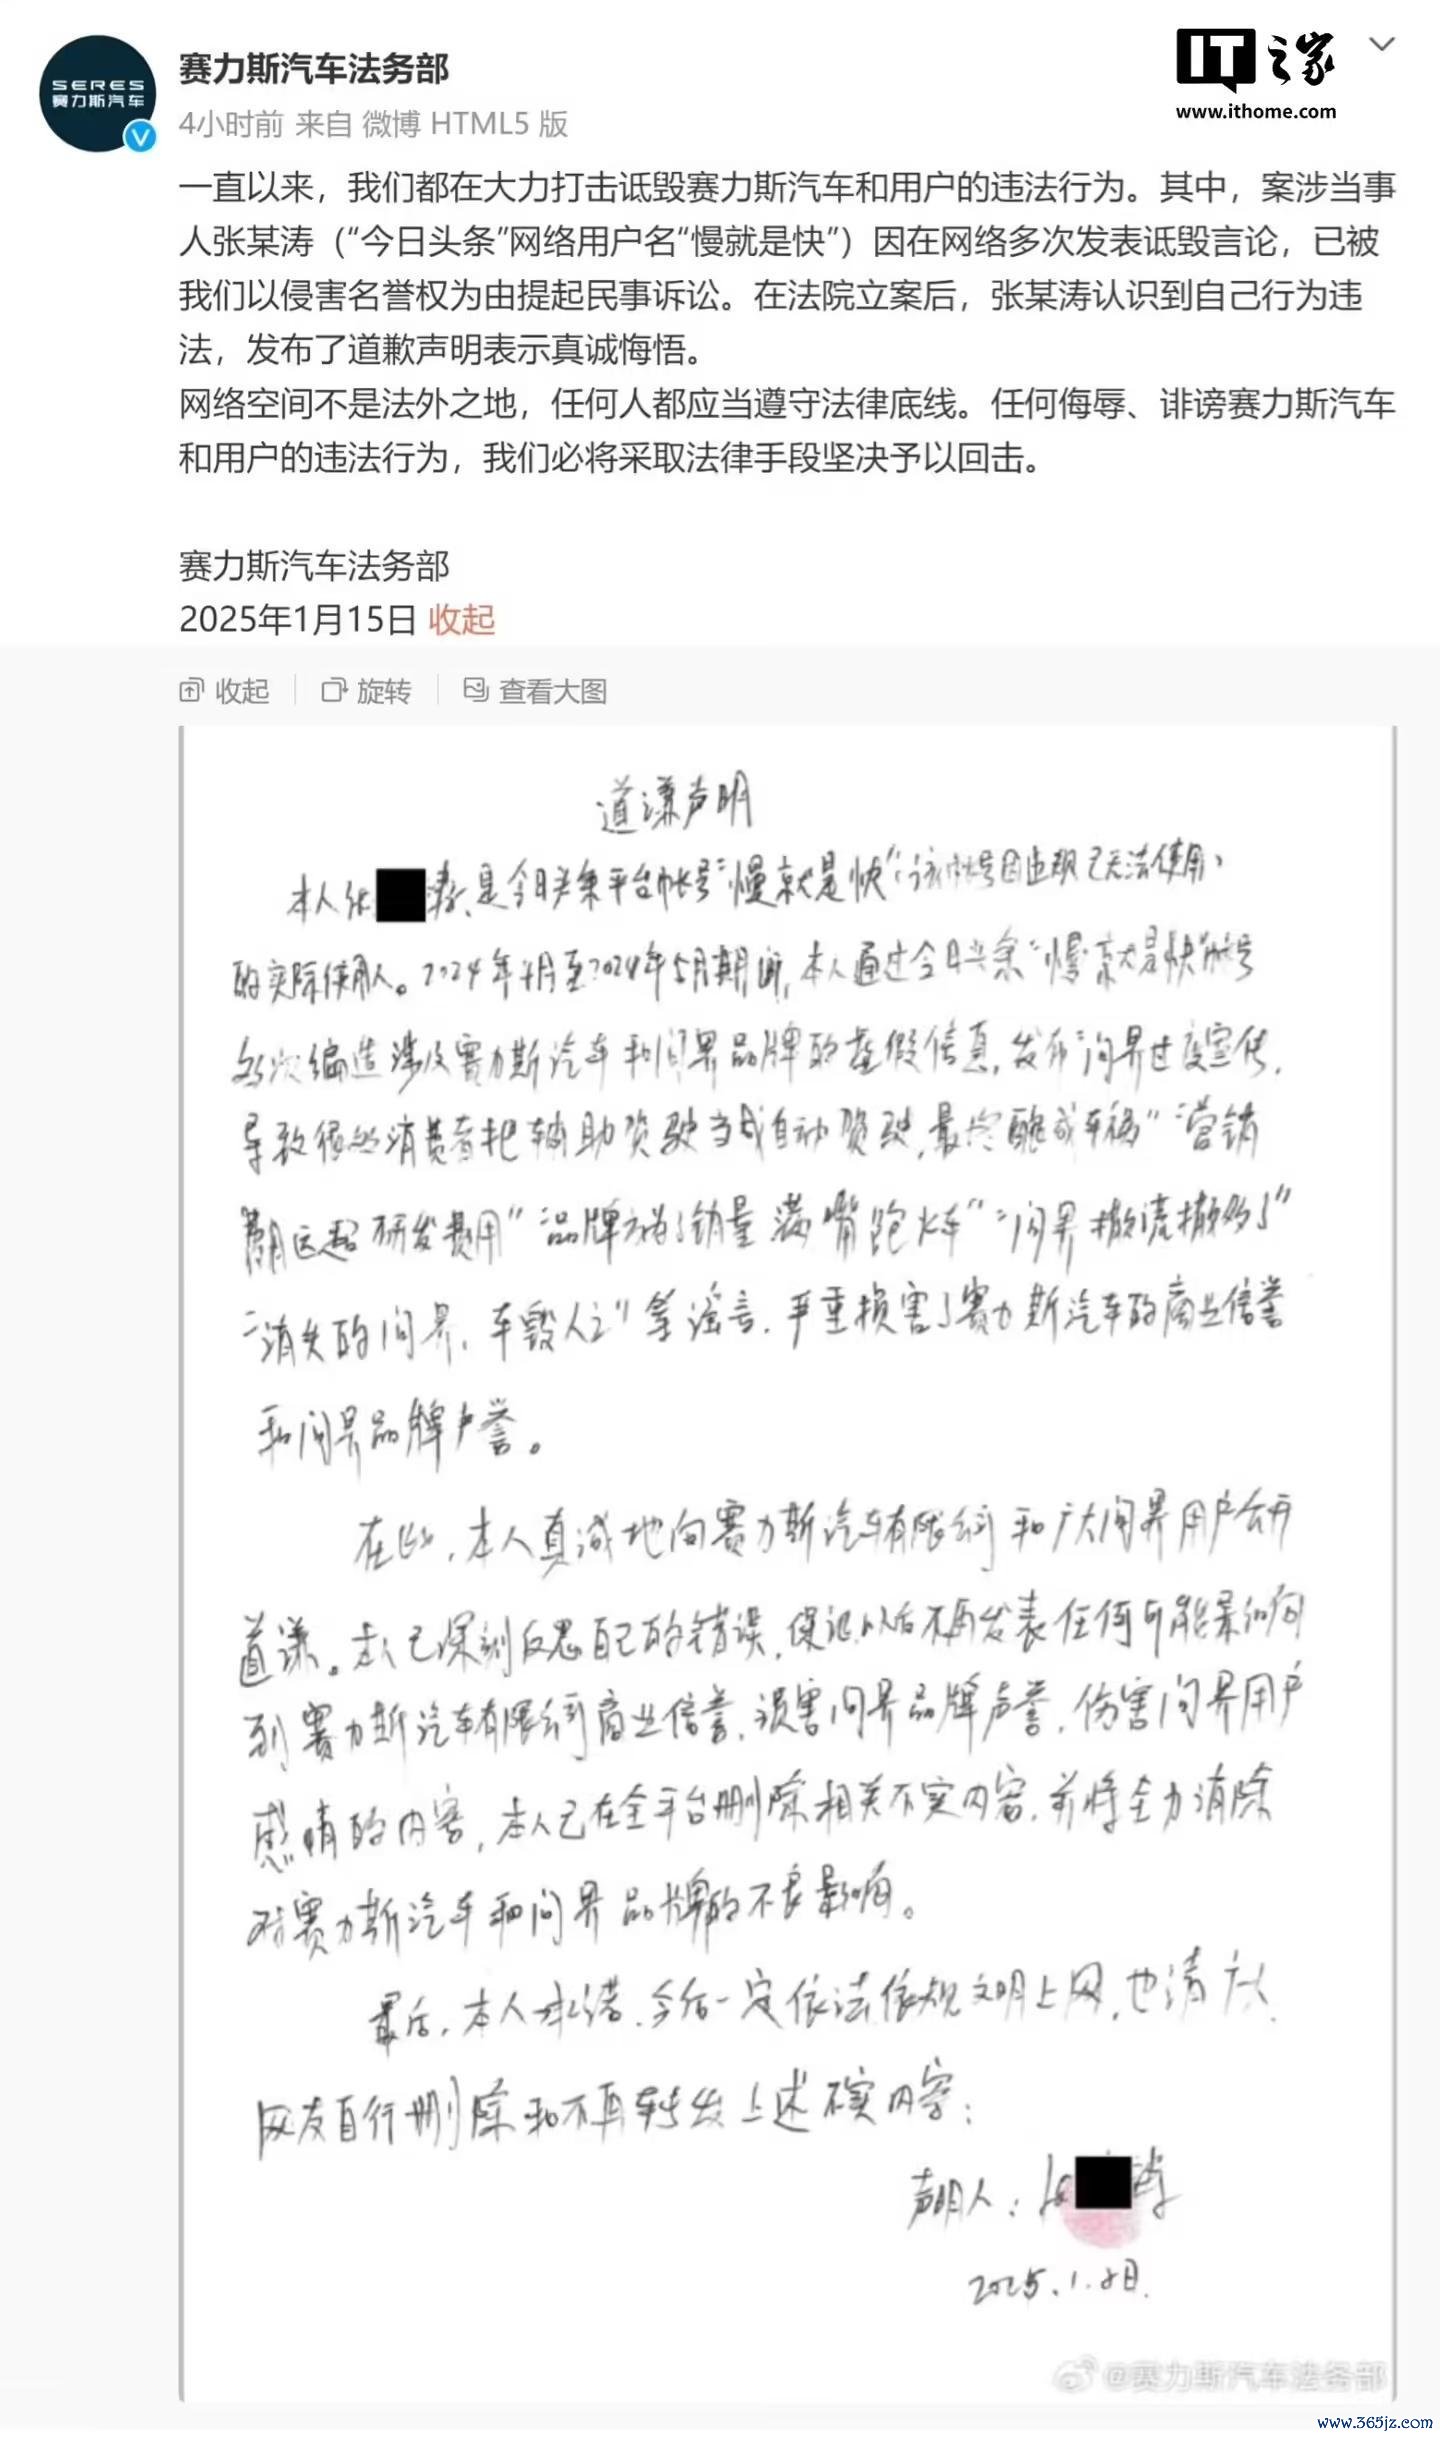 SERES
赛力斯汽车
赛力斯汽车法务部
IT之家
www.ithome.com
4小时前 来自 微博 HTML5 版
一直以来，我们都在大力打击诋毁赛力斯汽车和用户的违法行为。其中，案涉当事
人张某涛（“今日头条”网络用户名“慢就是快”）因在网络多次发表诋毁言论，已被
我们以侵害名誉权为由提起民事诉讼。在法院立案后，张某涛认识到自己行为违
法，发布了道歉声明表示真诚悔悟。
网络空间不是法外之地，任何人都应当遵守法律底线。任何侮辱、诽谤赛力斯汽车
和用户的违法行为，我们必将采取法律手段坚决予以回击。
赛力斯汽车法务部
2025年1月15日 收起
收起 旋转 查看大图
道谦声明
本人张 涛、是今日头条平台帐号“慢就是快”（该帐号因违规已无法使用）
的实际使用人。2024年4月至2024年5月期间，本人通过今日头条“慢就是快”帐号
多次编造涉及赛力斯汽车和问界品牌的虚假信息，发布“问界过度宣传，
导致很多消费者把辅助驾驶当成自动驾驶，最终酿成车祸”“营销
费用远超研发费用”“品牌方为了销量满嘴跑火车”“问界撒谎撒多了”
“消失的问界，车毁人亡”等谣言，严重损害了赛力斯汽车的商业信誉
和问界品牌声誉。
在此，本人真诚地向赛力斯汽车有限公司和广大问界用户公开
道谦。本人已深刻反思自己的错误，保证以后不再发表任何可能影响
到赛力斯汽车有限公司商业信誉，损害问界品牌声誉，伤害问界用户
感情的内容，本人已在全平台删除相关不实内容，并将全力消除
对赛力斯汽车和问界品牌的不良影响。
最后，本人承诺，今后一定依法依规文明上网，也请广大
网友自行删除和不再转发上述不实内容；
声明人：张 涛
2025.1.8日.
@赛力斯汽车法务部
www.365jz.com